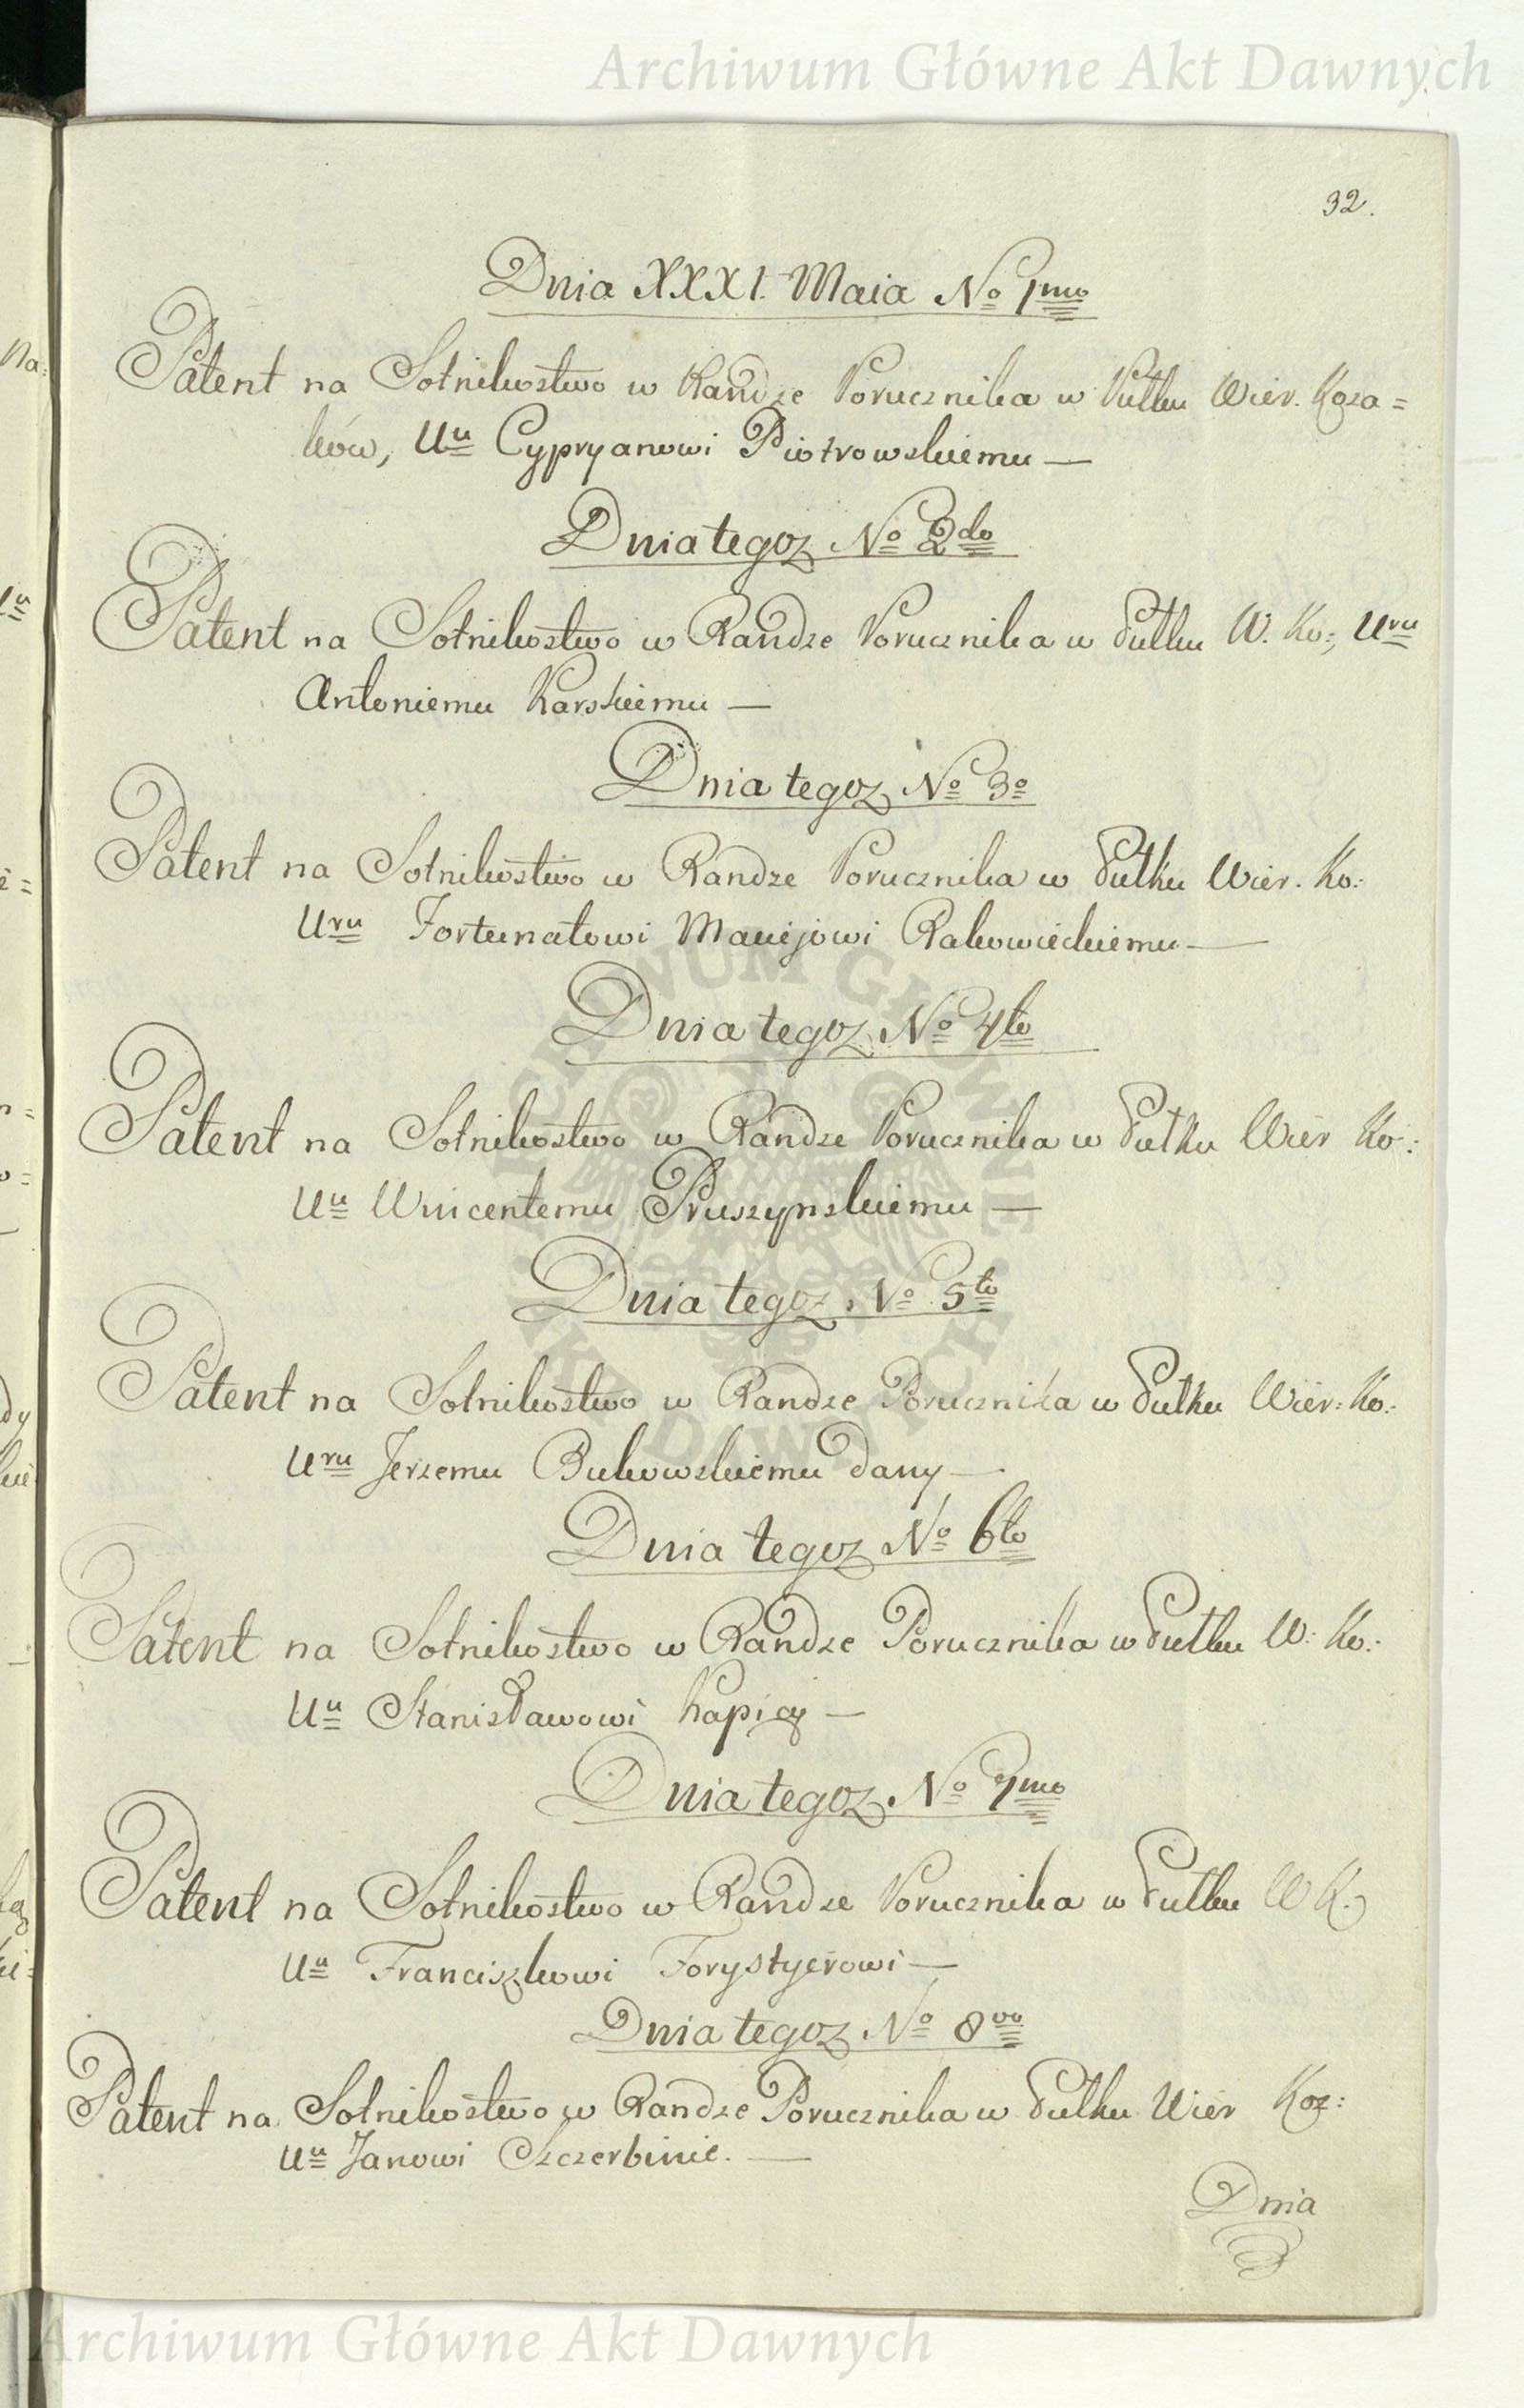 Archiwum Główne Akt Dawnych
32.
Dnia XXXI. Maia No 1mo
Patent na Sotnikostwo w Randze Porucznika w Pułku Wier. Koza=
ków, Uu Cypryanowi Piotrowskiemu —
Dnia tegoz No 2do
Patent na Sotnikostwo w Randze Porucznika w Pułku W. Ko:, Uru
Antoniemu Karskiemu —
Dnia tegoz No 3o
Patent na Sotnikostwo w Randze Porucznika w Pułku Wier. Ko:
Uru Fortunatowi Maciejowi Rakowieckiemu —
Dnia tegoz No 4to
Patent na Sotnikostwo w Randze Porucznika w Pułku Wier Ko:
Uu Wincentemu Pruszynskiemu —
Dnia tegoz No 5to
Patent na Sotnikostwo w Randze Porucznika w Pułku Wier: Ko:
Uru Jerzemu Bukowskiemu dany —
Dnia tegoz No 6to
Patent na Sotnikostwo w Randze Porucznika w Pułku W: Ko:
Uu Stanisławowi Kapicy —
Dnia tegoz No 7mo
Patent na Sotnikostwo w Randze Porucznika w Pułku W K.
Uu Franciszkowi Forystyerowi —
Dnia tegoz No 8vo
Patent na Sotnikostwo w Randze Porucznika w Pułku Wier Koz:
Uu Janowi Szczerbinie. —
Dnia
Archiwum Główne Akt Dawnych